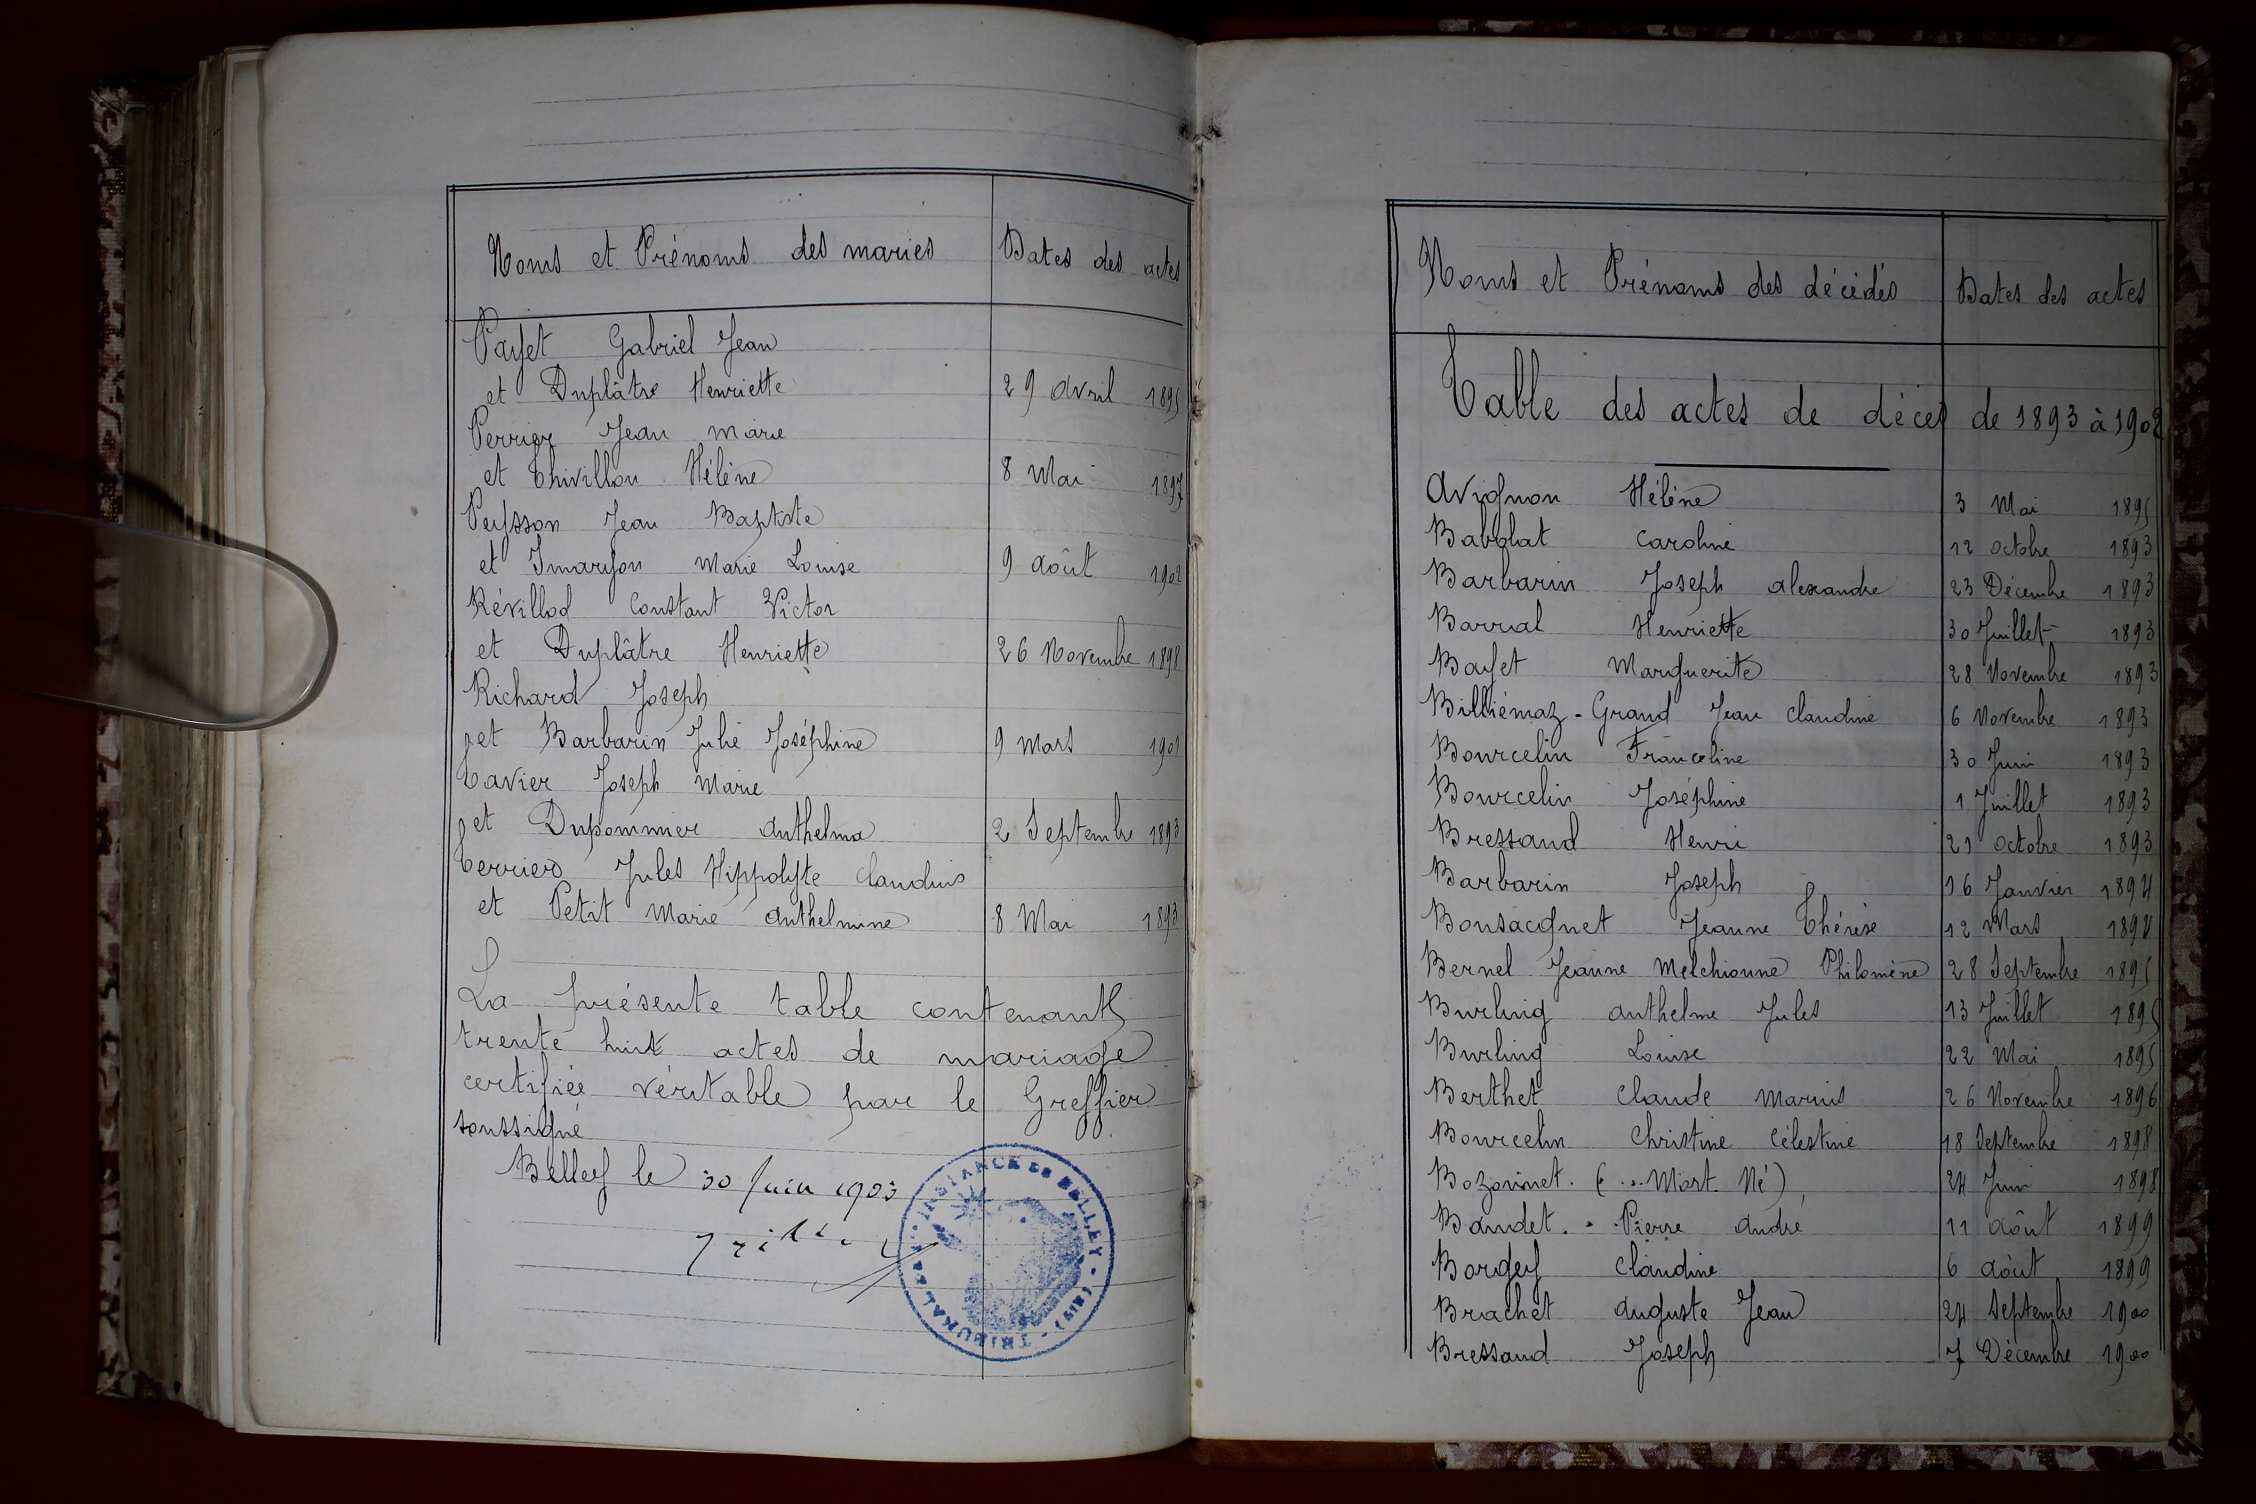 Noms et Prénoms des maries
Dates des actes
Payet Gabriel Jean
et Duplâtre Henriette 29 avril 1895
Perrier Jean Marie
et Chivillon Hélène 8 Mai 1897
Peysson Jean Baptiste
et Marie Louise 9 août 1902
Révillod Constant Victor
et Duplâtre Henriette 26 Novembre 1898
Richard Joseph
et Barbarin Julie Joséphine 9 Mars 1901
Tavier Joseph Marie
et Dupommier Anthelma 2 Septembre 1893
Terrier Jules Hippolyte Claudius
et Petit Marie Anthelmine 8 Mai 1893
La présente table contenant
trente huit actes de mariage
certifiée véritable par le Greffier
soussigné
Belley le 30 Juin 1903
TRIBUNAL DE 1RE INSTANCE DE BELLEY (AIN)
Noms et Prénoms des décédés
Dates des actes
Table des actes de décès de 1893 à 1902
Avignon Hélène 3 Mai 1895
Babolat Caroline 12 octobre 1893
Barbarin Joseph Alexandre 23 Décembre 1893
Barral Henriette 30 Juillet 1893
Bayet Marguerite 28 Novembre 1893
Billiémaz-Grand Jean Claudine 6 Novembre 1893
Bourcelin Franceline 30 Juin 1893
Bourcelin Joséphine 1 Juillet 1893
Bressand Henri 21 octobre 1893
Barbarin Joseph 16 Janvier 1894
Bonsacquet Jeanne Thérèse 12 Mars 1894
Bernel Jeanne Melchionne Philomène 28 Septembre 1895
Burling Anthelme Jules 13 Juillet 1895
Burling Louise 22 Mai 1895
Berthet Claude Marius 26 Novembre 1896
Bourcelin Christine Célestine 18 Septembre 1898
Bozonnet. (... Mort. Né) 24 Juin 1898
Baudet. Pierre André 11 août 1899
Borgey Claudine 6 août 1899
Brachet Auguste Jean 24 Septembre 1900
Bressand Joseph 7 Décembre 1900